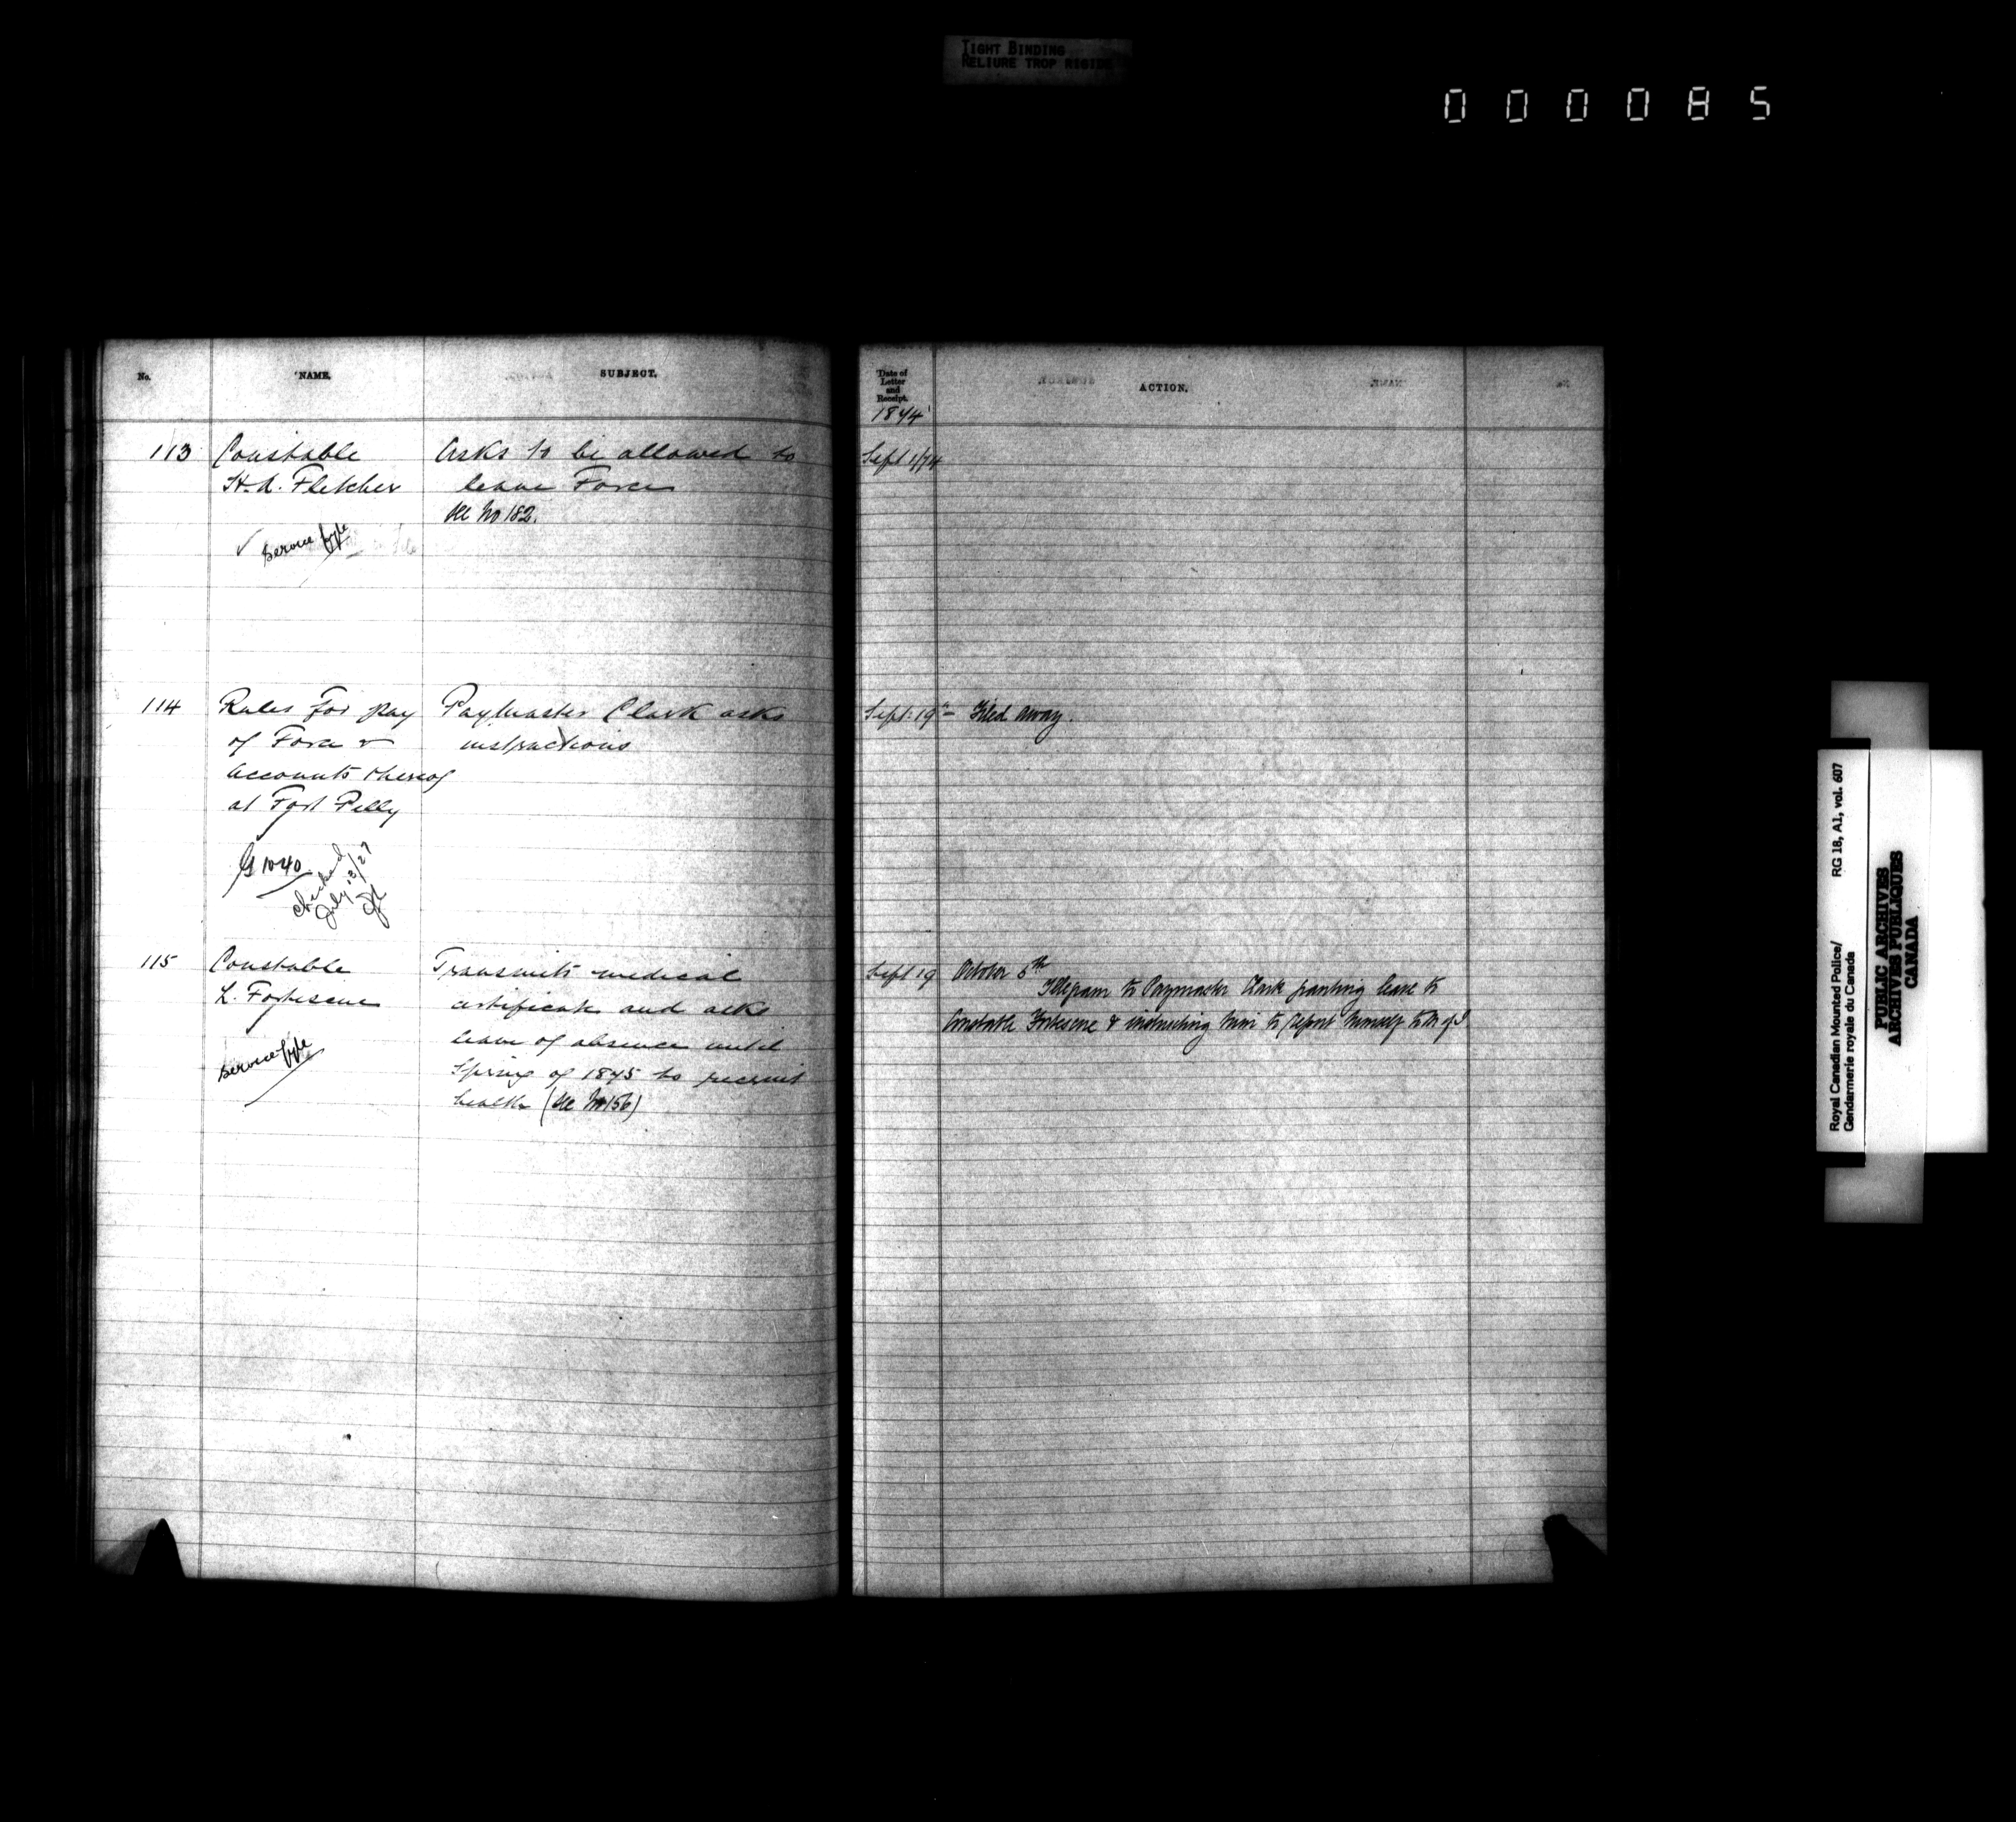 TIGHT BINDING
RELIURE TROP RIGIDE
000085
No.
NAME.
SUBJECT.
113
Constable
H. A. Fletcher
✓ Service fyle
Asks to be allowed to
leave Force
See No 182.
114
Rules for pay
of Force &
accounts thereof
at Fort Pelly
G 1040
checked
July 18/27
Paymaster Clark asks
instructions
115
Constable
L. Fortescue
Service fyle
Transmits medical
certificate and asks
leave of absence until
Spring of 1875 to recruit
health (See No 156)
Date of
Letter
and
Receipt.
1874
ACTION.
Sept 1/74
Sept. 19th Filed away.
Sept 19 October 5th
Telegram to Paymaster Clark granting leave to
Constable Fortescue & instructing him to report himself to
Royal Canadian Mounted Police/
Gendarmerie royale du Canada
RG 18, A1, vol. 607
PUBLIC ARCHIVES
ARCHIVES PUBLIQUES
CANADA